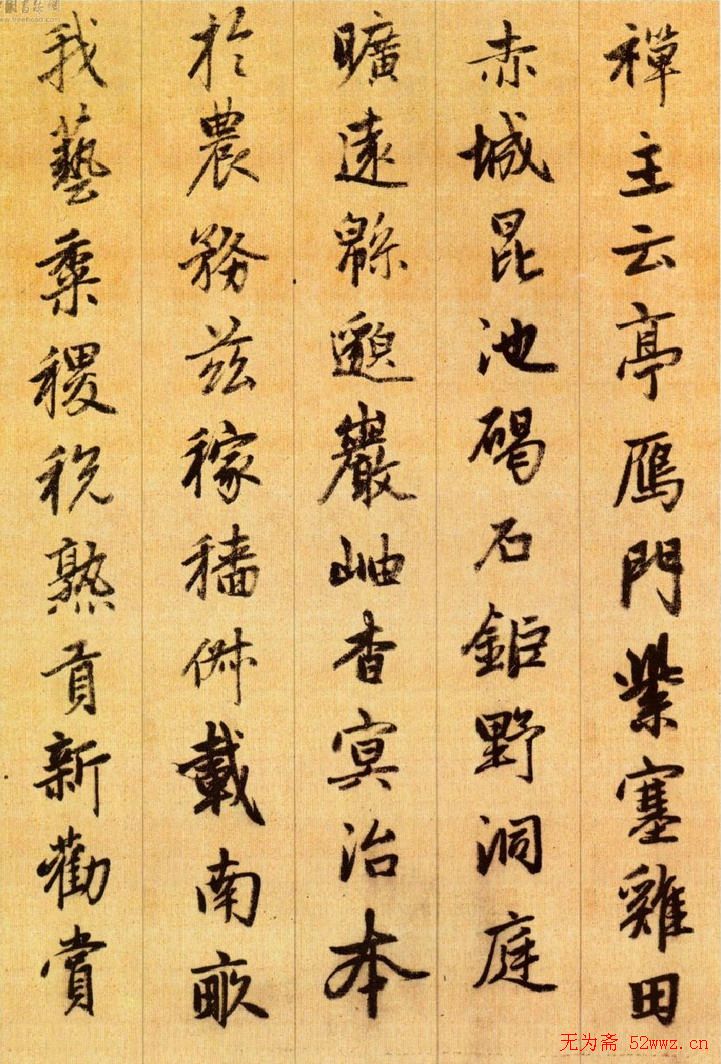 禪主云亭鴈門紫塞雞田
赤城昆池碣石鉅野洞庭
曠遠緜邈巖岫杳冥治本
於農務兹稼穡俶載南畝
我藝黍稷稅熟貢新勸賞
www.freehead.com
无为斋 52wwz.cn